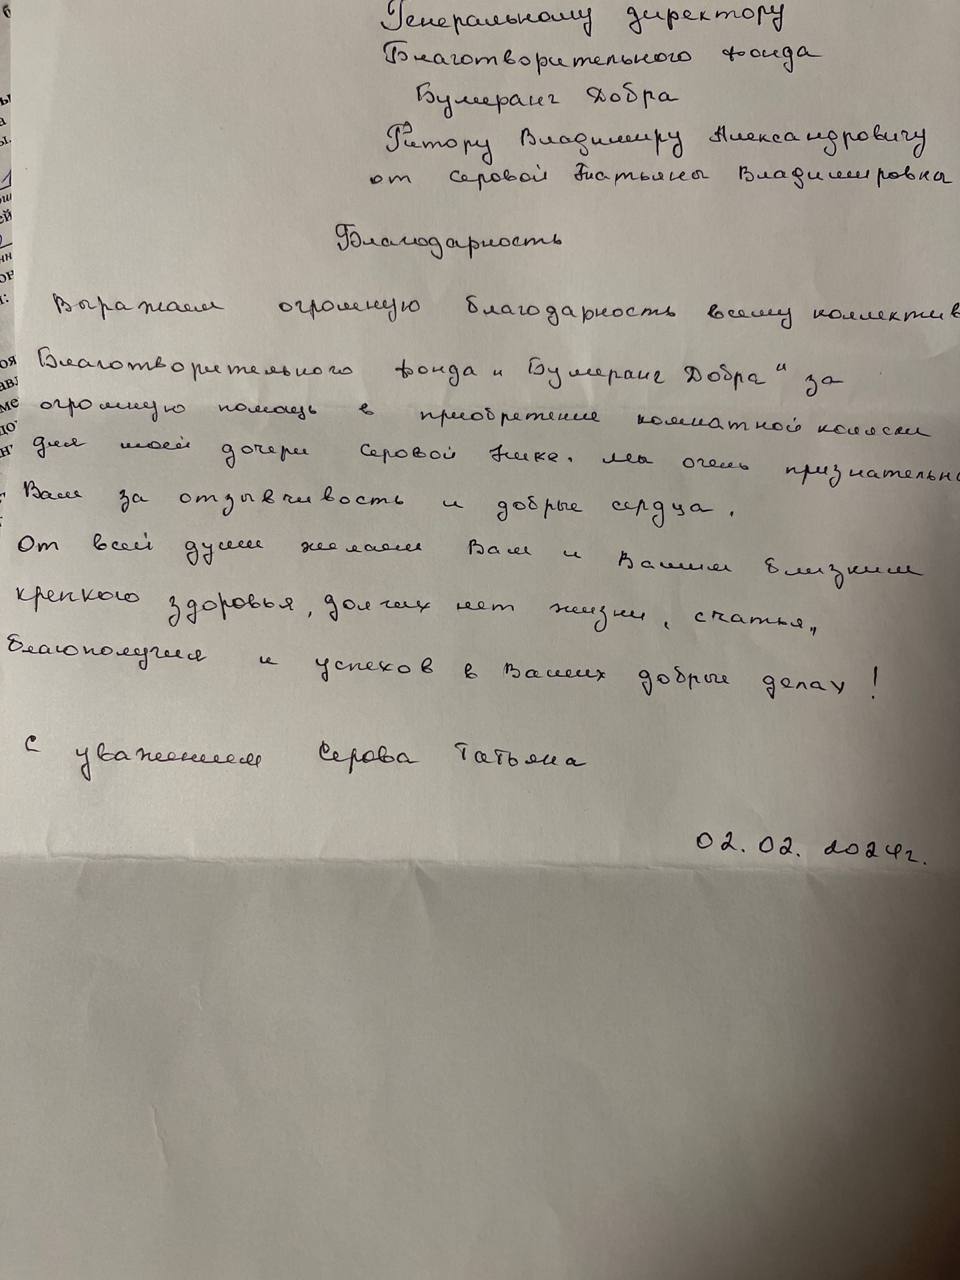 Генеральному директору
Благотворительного фонда
Бумеранг Добра
Ритору Владимиру Александровичу
от Серовой Татьяны Владимировна
Благодарность
Выражаем огромную благодарность всему коллектив
Благотворительного фонда „Бумеранг Добра" за
огромную помощь в приобретение комнатной коляски
для моей дочери Серовой Нике. Мы очень признательн
Вам за отзывчивость и добрые сердца.
От всей души желаем Вам и Вашим близким
крепкого здоровья, долгих лет жизни, счастья,
благополучия и успехов в Ваших добрые делах!
С уважением Серова Татьяна
02.02.2024г.